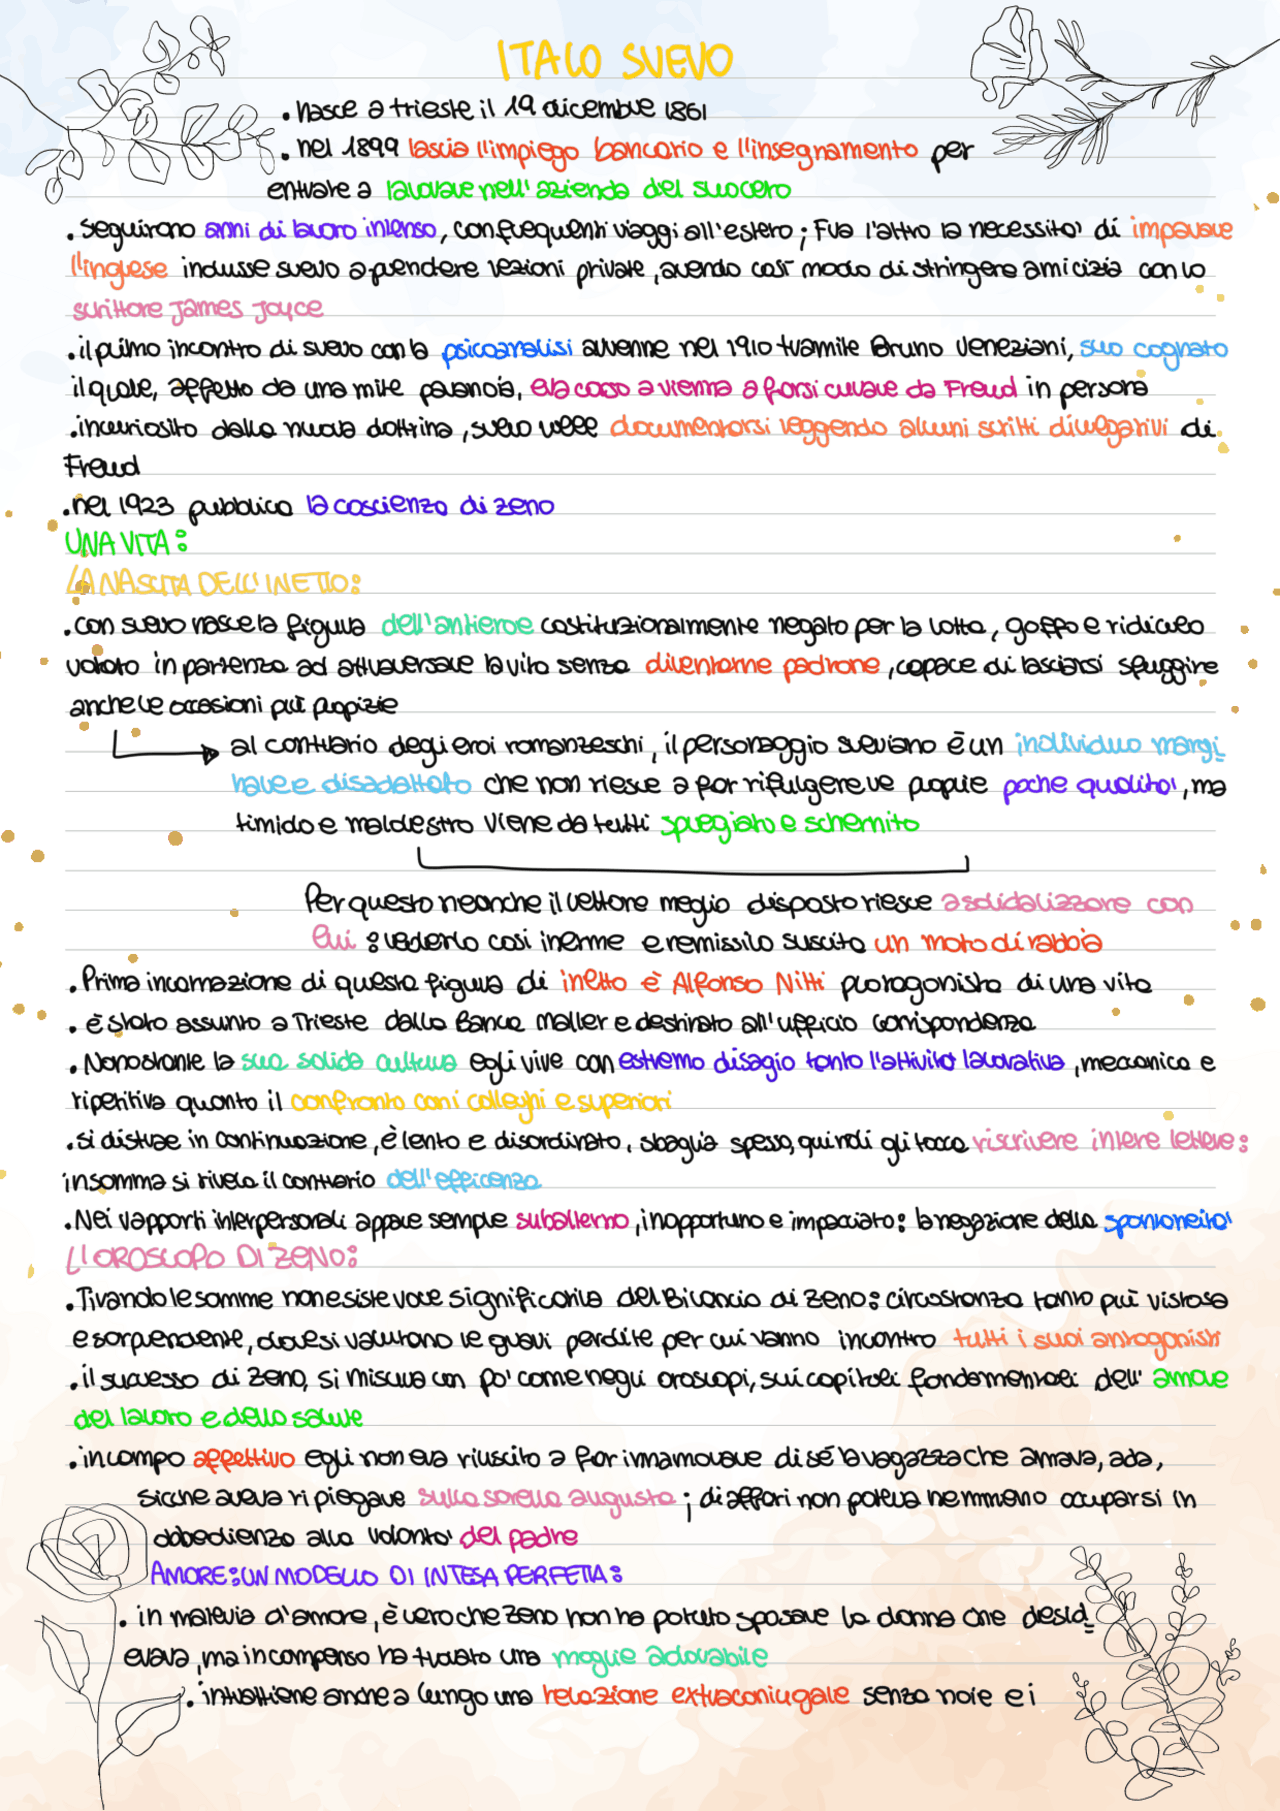 ITALO SVEVO
• nasce a trieste il 19 dicembre 1861
• nel 1899 lascia l'impiego bancario e l'insegnamento per
entrare a lavorare nell'azienda del suocero
• seguirono anni di lavoro intenso, con frequenti viaggi all'estero; Fra l'altro la necessità di imparare
l'inglese indusse svevo a prendere lezioni private, avendo così modo di stringere amicizia con lo
scrittore James Joyce
• il primo incontro di svevo con la psicoanalisi avvenne nel 1910 tramite Bruno Veneziani, suo cognato
il quale, affetto da una mite paranoia, era corso a vienna a farsi curare da Freud in persona
• incuriosito dalla nuova dottrina, svevo volle documentarsi leggendo alcuni scritti divulgativi di
Freud
• nel 1923 pubblica la coscienza di zeno
UNA VITA:
LA NASCITA DELL'INETTO:
• con svevo nasce la figura dell'antieroe costituzionalmente negato per la lotta, goffo e ridicolo
votato in partenza ad attraversare la vita senza diventarne padrone, capace di lasciarsi sfuggire
anche le occasioni più propizie
al contrario degli eroi romanzeschi, il personaggio sveviano è un individuo margi
nale e disadattato che non riesce a far rifulgere le proprie poche qualità, ma
timido e maldestro viene da tutti spregiato e schernito
Per questo neanche il lettore meglio disposto riesce a solidalizzare con
lui: vederlo così inerme e remissilo suscita un moto di rabbia
• Prima incarnazione di questa figura di inetto è Alfonso Nitti protagonista di una vita
• è stato assunto a Trieste dalla Banca Maller e destinato all'ufficio corrispondenza
• Nonostante la sua solida cultura egli vive con estremo disagio tanto l'attività lavorativa, meccanica e
ripetitiva quanto il confronto con i colleghi e superiori
• si distrae in continuazione, è lento e disordinato, sbaglia spesso, quindi gli tocca riscrivere intere lettere:
insomma si rivela il contrario dell'efficenza
• Nei rapporti interpersonali appare sempre subalterno, inopportuno e impacciato: la negazione della spontaneità
L'OROSCOPO DI ZENO:
• Tirando le somme non esiste voce significativa del Bilancio di zeno: circostanza tanto più vistosa
e sorprendente, dove si valutano le gravi perdite per cui vanno incontro tutti i suoi antagonisti
• il successo di zeno, si misura un po' come negli oroscopi, sui capitoli fondamentali dell'amore
del lavoro e della salute
• in campo affettivo egli non era riuscito a far innamorare di sé la ragazza che amava, ada,
sicche aveva ripiegare sulla sorella augusta; di affari non poteva nemmeno occuparsi in
obbedienza alla volontà del padre
AMORE: UN MODELLO DI INTESA PERFETTA:
• in materia d'amore, è vero che zeno non ha potuto sposare la donna che desid
erava, ma in compenso ha trovato una moglie adorabile
• intrattiene anche a lungo una relazione extraconiugale senza noie e i